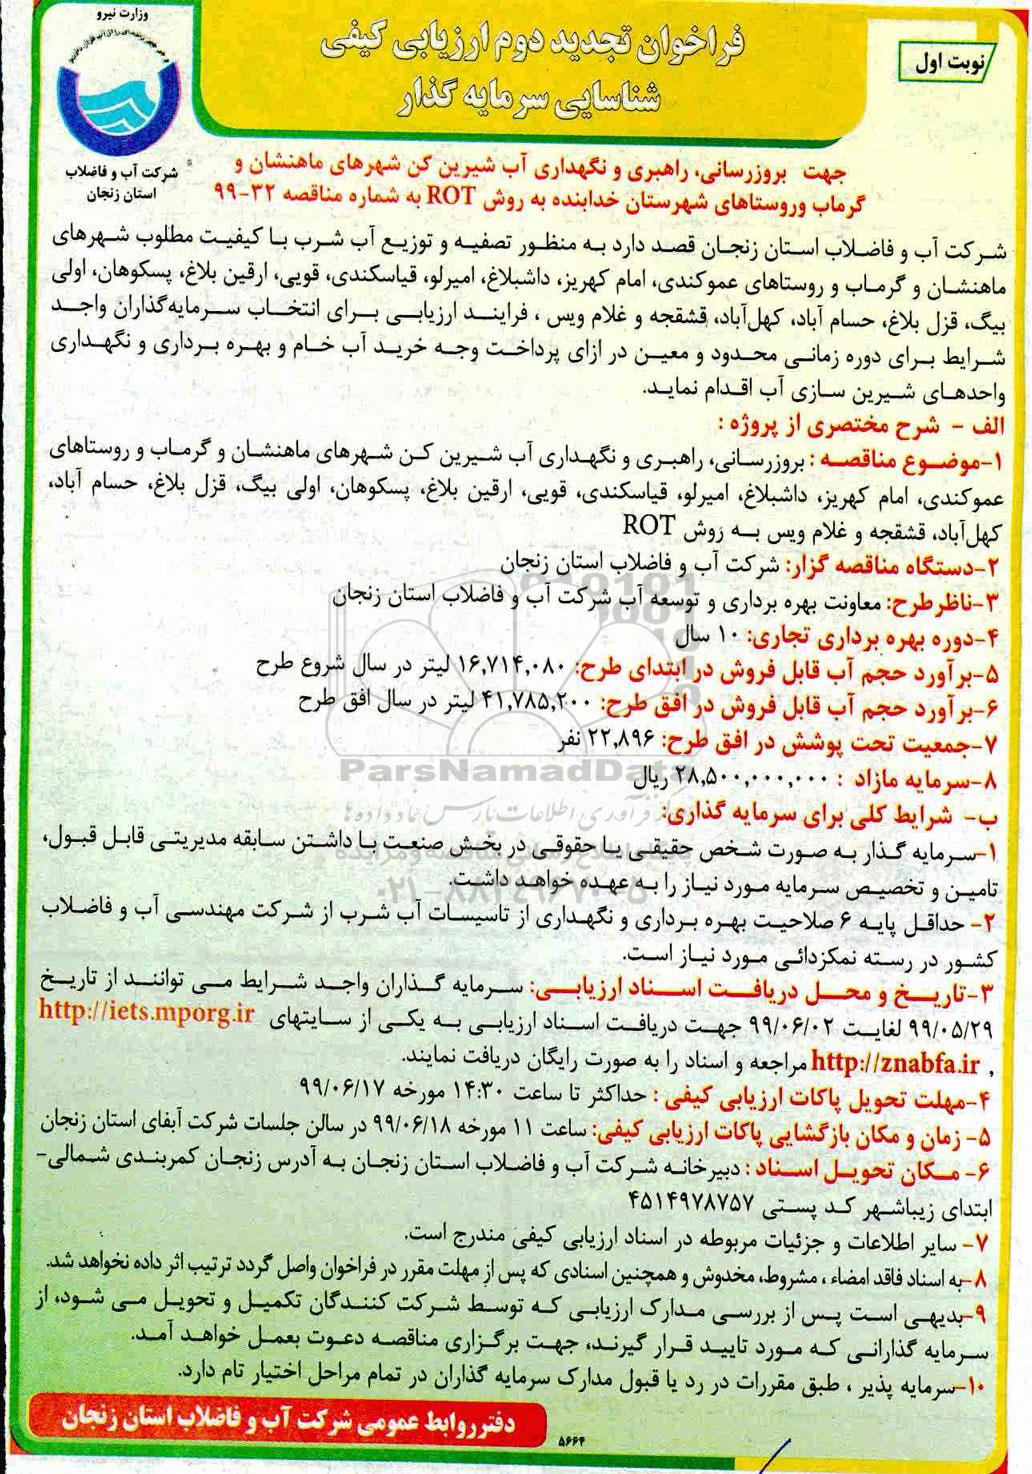 وزارت نیرو
شرکت آب و فاضلاب
استان زنجان
نوبت اول
فراخوان تجدید دوم ارزیابی کیفی
شناسایی سرمایه گذار
جهت بروزرسانی، راهبری و نگهداری آب شیرین کن شهرهای ماهنشان و
گرماب وروستاهای شهرستان خدابنده به روش ROT به شماره مناقصه ۳۲-۹۹
شرکت آب و فاضلاب استان زنجان قصد دارد به منظور تصفیه و توزیع آب شرب با کیفیت مطلوب شهرهای
ماهنشان و گرماب و روستاهای عموکندی، امام کهریز، داشبلاغ، امیرلو، قیاسکندی، قویی، ارقین بلاغ، پسکوهان، اولی
بیگ، قزل بلاغ، حسام آباد، کهل‌آباد، قشقجه و غلام ویس ، فرایند ارزیابی برای انتخاب سرمایه‌گذاران واجد
شرایط برای دوره زمانی محدود و معین در ازای پرداخت وجه خرید آب خام و بهره برداری و نگهداری
واحدهای شیرین سازی آب اقدام نماید.
الف - شرح مختصری از پروژه :
۱-موضوع مناقصه : بروزرسانی، راهبری و نگهداری آب شیرین کن شهرهای ماهنشان و گرماب و روستاهای
عموکندی، امام کهریز، داشبلاغ، امیرلو، قیاسکندی، قویی، ارقین بلاغ، پسکوهان، اولی بیگ، قزل بلاغ، حسام آباد،
کهل‌آباد، قشقجه و غلام ویس به روش ROT
۲-دستگاه مناقصه گزار: شرکت آب و فاضلاب استان زنجان
۳-ناظرطرح: معاونت بهره برداری و توسعه آب شرکت آب و فاضلاب استان زنجان
۴-دوره بهره برداری تجاری: ۱۰ سال
۵-برآورد حجم آب قابل فروش در ابتدای طرح: ۱۶,۷۱۴,۰۸۰ لیتر در سال شروع طرح
۶-برآورد حجم آب قابل فروش در افق طرح: ۴۱,۷۸۵,۲۰۰ لیتر در سال افق طرح
۷-جمعیت تحت پوشش در افق طرح: ۲۲,۸۹۶ نفر
۸-سرمایه مازاد : ۲۸,۵۰۰,۰۰۰,۰۰۰ ریال
ParsNamadData
ب- شرایط کلی برای سرمایه گذاری:
۱-سرمایه گذار به صورت شخص حقیقی یا حقوقی در بخش صنعت با داشتن سابقه مدیریتی قابل قبول،
تامین و تخصیص سرمایه مورد نیاز را به عهده خواهد داشت.
۲- حداقل پایه ۶ صلاحیت بهره برداری و نگهداری از تاسیسات آب شرب از شرکت مهندسی آب و فاضلاب
کشور در رسته نمکزدائی مورد نیاز است.
۳-تاریخ و محل دریافت اسناد ارزیابی: سرمایه گذاران واجد شرایط می توانند از تاریخ
۹۹/۰۵/۲۹ لغایت ۹۹/۰۶/۰۲ جهت دریافت اسناد ارزیابی به یکی از سایتهای http://iets.mporg.ir
, http://znabfa.ir مراجعه و اسناد را به صورت رایگان دریافت نمایند.
۴-مهلت تحویل پاکات ارزیابی کیفی : حداکثر تا ساعت ۱۴:۳۰ مورخه ۹۹/۰۶/۱۷
۵- زمان و مکان بازگشایی پاکات ارزیابی کیفی: ساعت ۱۱ مورخه ۹۹/۰۶/۱۸ در سالن جلسات شرکت آبفای استان زنجان
۶- مکان تحویل اسناد : دبیرخانه شرکت آب و فاضلاب استان زنجان به آدرس زنجان کمربندی شمالی-
ابتدای زیباشهر کد پستی ۴۵۱۴۹۷۸۷۵۷
۷- سایر اطلاعات و جزئیات مربوطه در اسناد ارزیابی کیفی مندرج است.
۸-به اسناد فاقد امضاء ، مشروط، مخدوش و همچنین اسنادی که پس از مهلت مقرر در فراخوان واصل گردد ترتیب اثر داده نخواهد شد.
۹-بدیهی است پس از بررسی مدارک ارزیابی که توسط شرکت کنندگان تکمیل و تحویل می شود، از
سرمایه گذارانی که مورد تایید قرار گیرند، جهت برگزاری مناقصه دعوت بعمل خواهد آمد.
۱۰-سرمایه پذیر ، طبق مقررات در رد یا قبول مدارک سرمایه گذاران در تمام مراحل اختیار تام دارد.
دفتر روابط عمومی شرکت آب و فاضلاب استان زنجان
۵۶۶۴